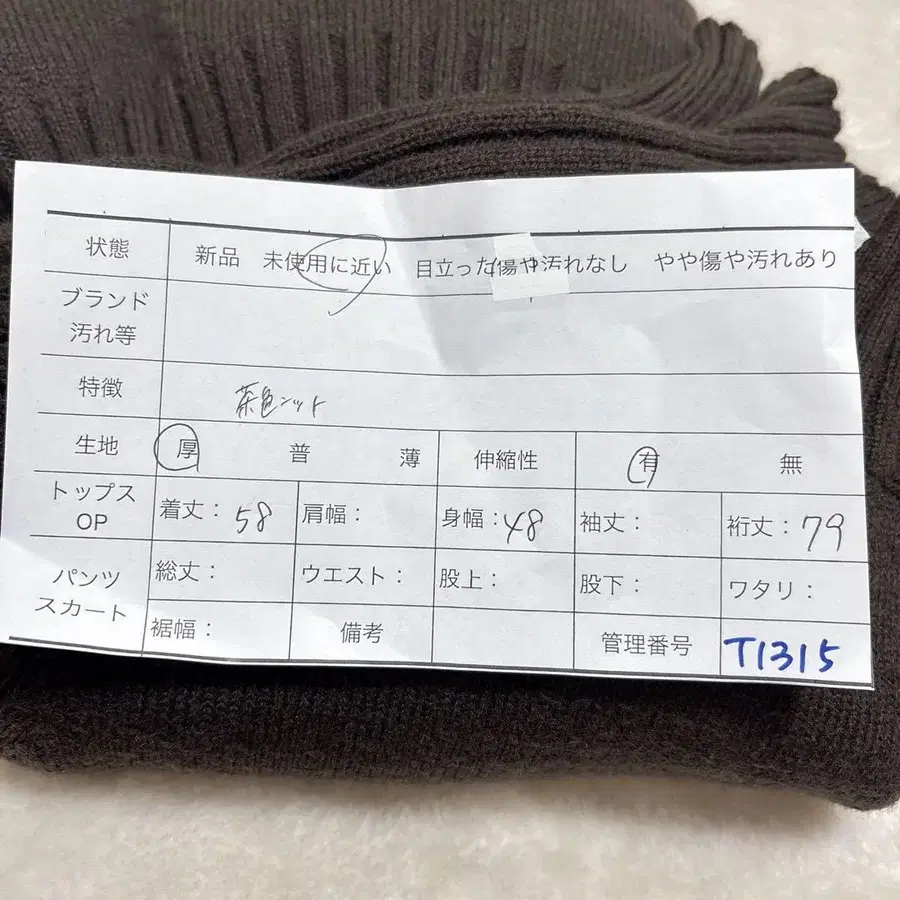 状態 新品 未使用に近い 目立った傷や汚れなし やや傷や汚れあり
ブランド
汚れ等
特徴 茶色ニット
生地 厚 普 薄 伸縮性 有 無
トップス
OP 着丈：58 肩幅： 身幅：48 袖丈： 裄丈：79
パンツ
スカート 総丈： ウエスト： 股上： 股下： ワタリ：
裾幅： 備考 管理番号 T1315